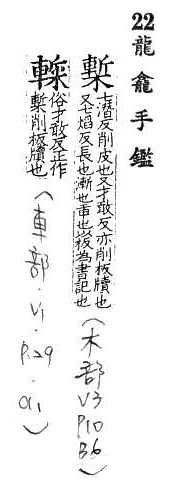 22 龍龕手鑑
槧
七潜反削皮也又才敢反亦削板牘也
又七焰反長也漸也重也板為書記也
(木部
V3
P10
B6)
俗才敢反正作
槧削板牘也
(車部·V1·P.29·α1)